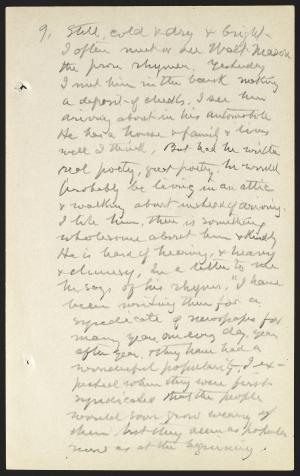 9. Still, cold & dry & bright -
I often meet or see Walt Mason
the prose rhymer. Yesterday
I met him in the bank making
a deposit of checks. I see him
driving about in his automobile
He has a house & family & lives
well I think. But had he written
real poetry, great poetry, he would
probably be living in an attic
& walking about instead of driving.
I like him, there is something
wholesome about him & kindly
He is hard of hearing, & heavy
& clumsy. In a letter to me
he says of his rhymes, "I have
been writing them for a
syndicate of newspapers for
many years, every day, year
after year. & they have had a
wonderful popularity. I ex-
pected when they were first
syndicated that the people
would soon grow weary of
them but they seem as popular
now as at the beginning.